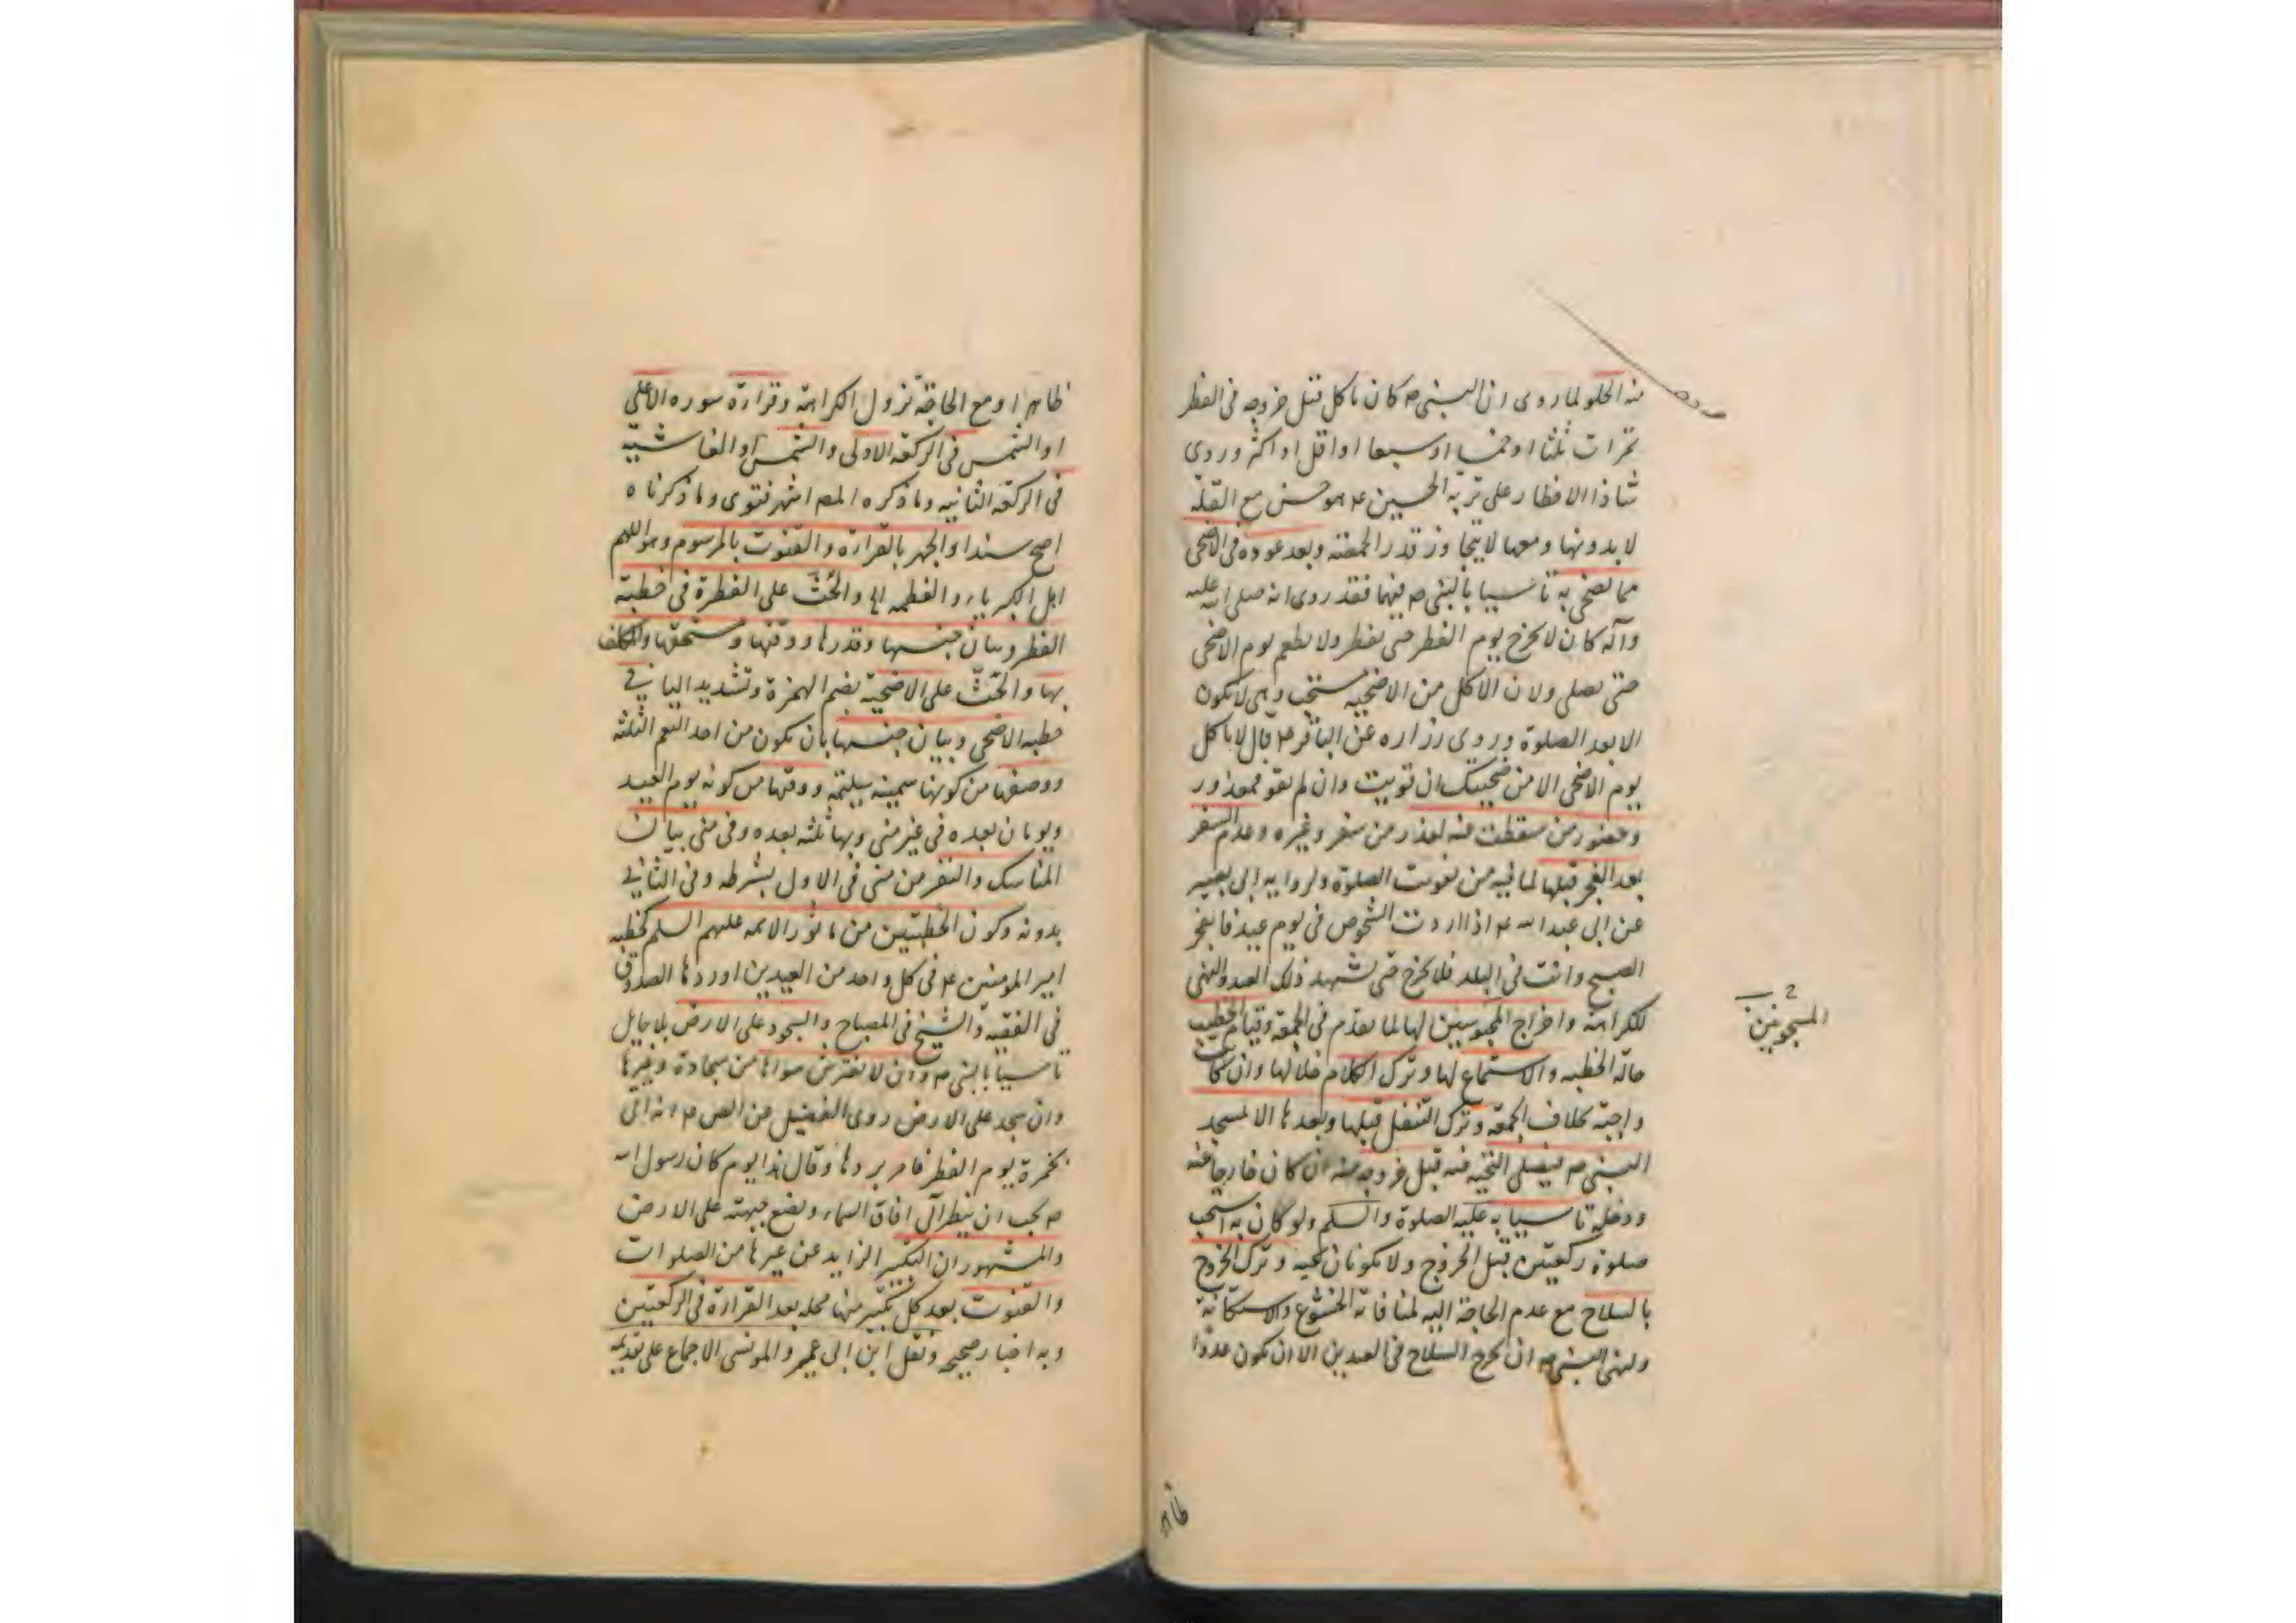 منه الحلو لما روى ان النبى ص كان ياكل قبل خروجه فى الفطر
تمرات ثلثا او خمسا او سبعا او اقل او اكثر وروى
شاذا الافطار على تربة الحسين ع وهو حسن مع القلة
لا بدونها ومعها لا يتجاوز قدر الحمصة وبعد عوده فى الاضحى
مما يضحى به تاسيا بالنبى ص فيهما فقد روى انه صلى الله عليه
وآله كان لا يخرج يوم الفطر حتى يفطر ولا يطعم يوم الاضحى
حتى يصلى ولان الاكل من الاضحية مستحب وهى لا تكون
الا بعد الصلوة وروى زرارة عن الباقر ع قال لا ياكل
يوم الاضحى الا من ضحيتك ان قويت وان لم تقو فمعذور
وحضور من سقطت عنه لعذر من سفر وغيره وعدم السفر
بعد الفجر قبلها لما فيه من تفويت الصلوة ولرواية ابى بصير
عن ابى عبد الله ع اذا اردت الشخوص فى يوم عيد فانفجر
الصبح وانت فى البلد فلا تخرج حتى تشهد ذلك العيد والنهى
للكراهة واخراج المحبوسين لها لما تقدم فى الجمعة وقيام الخطيب
المسجونين
حالة الخطبة والاستماع لها وترك الكلام خلالها وان كانت
واجبة بخلاف الجمعة وترك التنفل قبلها وبعدها الا لمسجد
النبى ص فيصلى التحية فيه قبل خروجه منه ان كان خارجا عنه
ودخله تاسيا به عليه الصلوة والسلم ولو كان به استحب
صلوة ركعتين قبل الخروج ولا تكونان تحية وترك الخروج
بالسلاح مع عدم الحاجة اليه لمنافاته الخشوع والاستكانة
ولنهى النبى ص ان يخرج السلاح فى العيدين الا ان يكون عدوا
ظاهر
ظاهرا ومع الحاجة تزول الكراهة وقراءة سوره الاعلى
او الشمس فى الركعة الاولى والشمس او الغاشية
فى الركعة الثانيه وما ذكره المص اشهر فتوى وما ذكرناه
اصح سندا والجهر بالقراءة والقنوت بالمرسوم وهو اللهم
اهل الكبرياء والعظمه الى والحث على الفطرة فى خطبة
الفطر وبيان جنسها وقدرها ووقتها ومستحقها والمكلف
بها والحث على الاضحية بضم الهمزة وتشديد اليا فى
خطبه الاضحى وبيان جنسها بان تكون من احد النعم الثلثه
ووصفها من كونها سمينه سليمة ووقتها من كونه يوم العيد
ويومان بعده فى غير منى وبها ثلثه بعده وفى منى بيان
المناسك والنفر من منى فى الاول بشرطه وفى الثانى
بدونه وكون الخطبتين من ماثور الائمه عليهم السلم كخطبه
امير المؤمنين ع فى كل واحد من العيدين اوردها الصدوق
فى الفقيه والشيخ فى المصباح والسجود على الارض بلا حايل
تاسيا بالنبى ص وان لا يفترش سواها من سجادة وغيرها
وان سجد على الارض روى الفضيل عن الص ع انه اتى
بخمرة يوم الفطر فامر بردها وقال هذا يوم كان رسول الله
ص يحب ان ينظر الى افاق السماء ويضع جبهته على الارض
والمشهور ان التكبير الزايد عن غيرها من الصلوات
والقنوت بعد كل تكبير منها محله بعد القراءة فى الركعتين
وبه اخبار صحيحه ونقل ابن ابى عمير والمونسى الاجماع على تقديمه